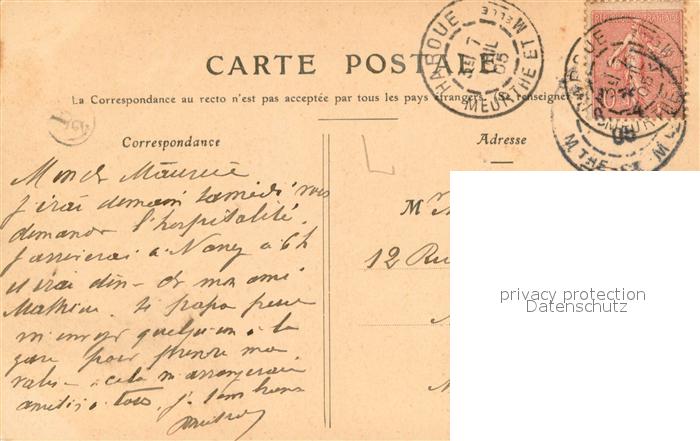 CARTE POSTALE
La Correspondance au recto n'est pas acceptée par tous les pays étrangers. (Se renseigner
Correspondance
Adresse
HAROUE
7
05
MEURTHE ET MLLE
Mon cher Maurice
J'irai demain samedi vous
demander l'hospitalité.
J'arriverai à Nancy à 6h
et irai dîn chez mon ami
Mathieu. Si papa peut
m'envoyer quelqu'un à la
gare pour prendre ma
valise cela m'arrangerait
amitiés à tous, je t'embrasse
M
12 Ru
privacy protection
Datenschutz